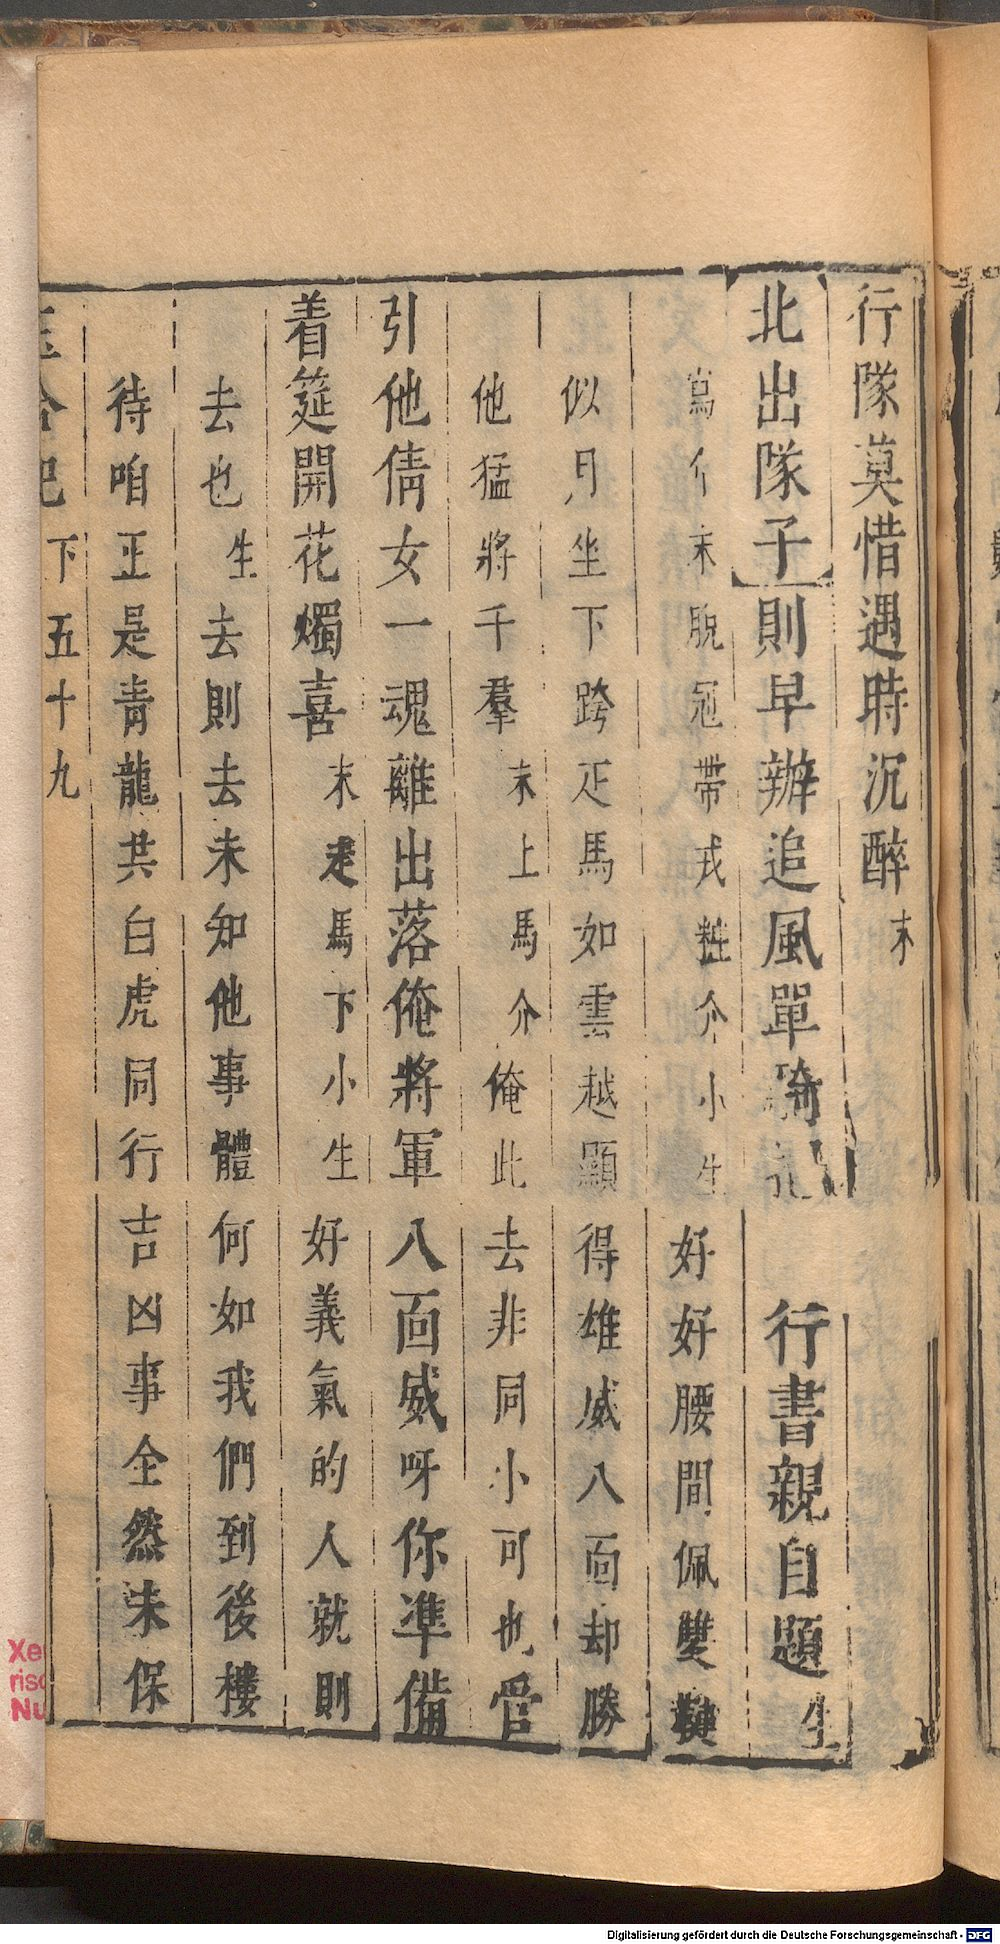 行隊莫惜遇時沉醉末
【北出隊子】則早辦追風單騎 行書親自題生
寫介末脫冠帶戎粧介小生好好腰間佩雙鞬
似月坐下跨疋馬如雲越顯得雄威八面却勝
他猛將千羣末上馬介俺此去非同小可也管
引他倩女一魂離出落俺將軍八面威呀你準備
着筵開花燭喜末走馬下小生好義氣的人就則
去也生去則去未知他事體何如我們到後樓
待咱正是青龍共白虎同行吉凶事全然未保
玉合記 下 五十九
Xe
ris
Nu
Digitalisierung gefördert durch die Deutsche Forschungsgemeinschaft - DFG